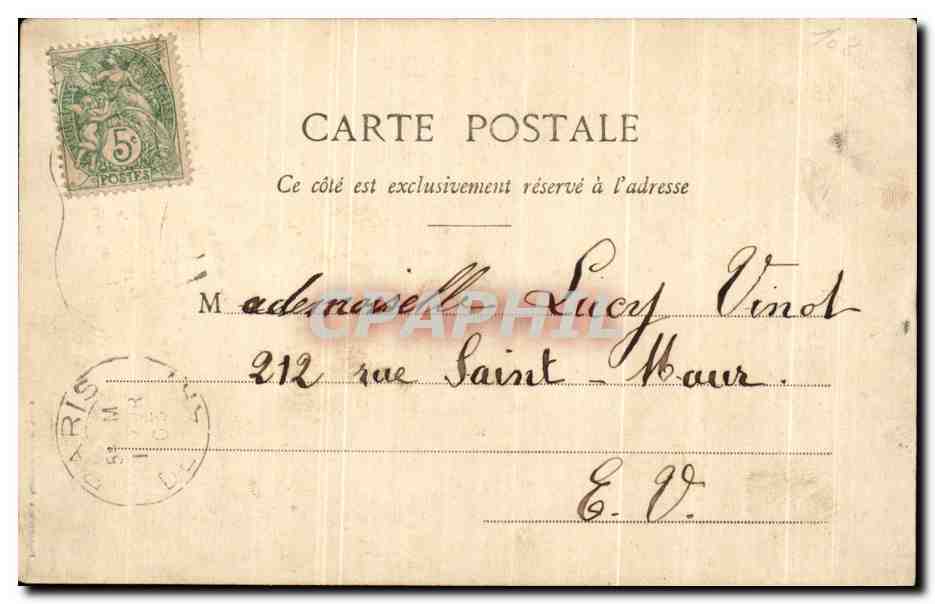 5c
POSTES
CARTE POSTALE
Ce côté est exclusivement réservé à l'adresse
Mademoiselle Lucy Vinot
CPAPHIL
212 rue Saint-Maur.
E. V.
PARIS